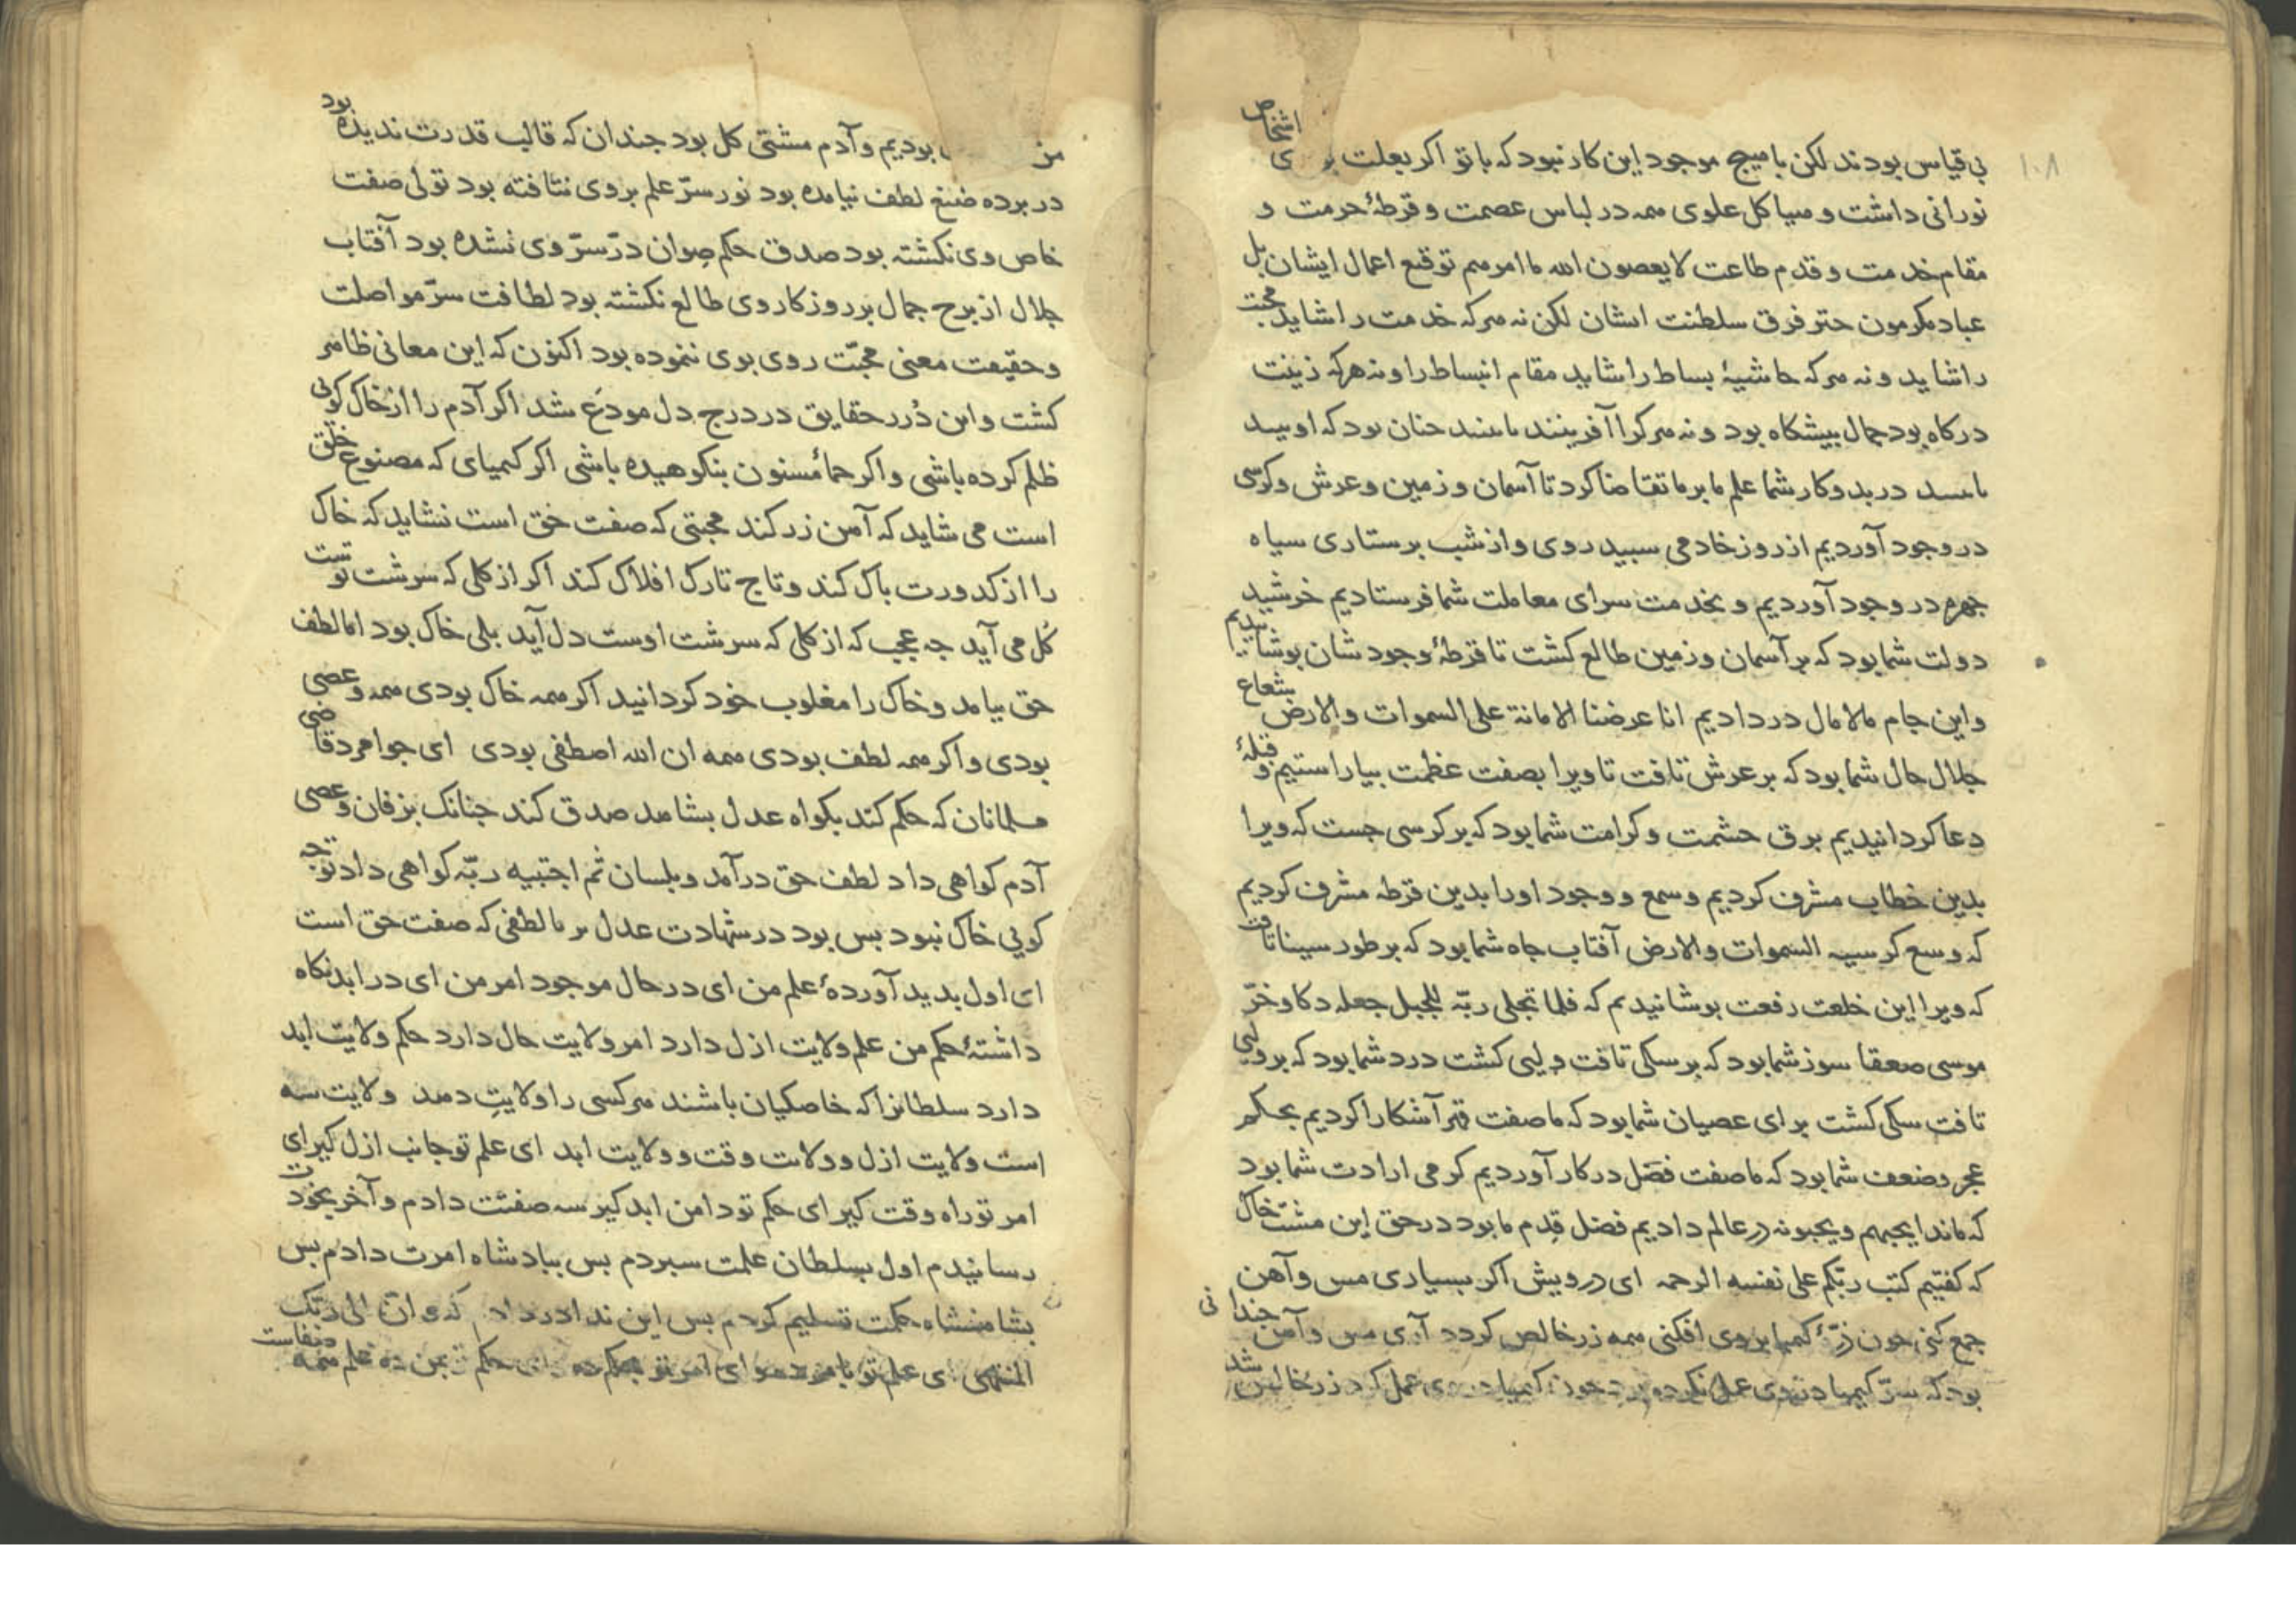 ١٠٨
بی قیاس بودند لکن با هیچ موجود این کار نبود که با تو اکر بعلت اشخاص
نورانی داشت و هیاکل علوی همه در لباس عصمت و قرطهٔ حرمت و
مقام خدمت و قدم طاعت لا یعصون الله ما امرهم توقیع اعمال ایشان بل
عباد مکرمون چتر فرق سلطنت ایشان لکن نه هرکه خدمت را شاید محبت
را شاید و نه هرکه حاشیهٔ بساط را شاید مقام انبساط را و نه هرکه زینت
درکاه بود جمال بیشکاه بود و نه هرکرا آفرینند
در بدو کار شما علم ما بر ما تقاضا کرد تا آسمان و زمین و عرش و کرسی
در وجود آوردیم از روز خادمی سبید روی و از شب برستاری سیاه
جهره در وجود آوردیم و بخدمت سرای معاملت شما فرستادیم خرشید
دولت شما بود که بر آسمان و زمین طالع کشت تا قرطهٔ وجودشان بوشانیدیم
و این جام مالامال در دادیم انا عرضنا الامانة علی السموات والارض شعاع
جلال حال شما بود که بر عرش تافت تا ویرا بصفت عظمت بیاراستیم و قبلهٔ
دعا کردانیدیم برق حشمت و کرامت شما بود که بر کرسی جست که ویرا
بدین خطاب مشرف کردیم و سمع و وجود اورا بدین قرطه مشرف کردیم
که وسع کرسیه السموات والارض آفتاب جاه شما بود که بر طور سینا تافت
که ویرا این خلعت رفعت بوشانیدیم که فلما تجلی ربّه للجبل جعله دکا و خرّ
موسی صعقا سوز شما بود که بر سکی تافت ولیی کشت درد شما بود که بر ولیی
تافت سکی کشت برای عصیان شما بود که ما صفت قهر آشکارا کردیم بحکم
عجز و ضعف شما بود که ما صفت فضل در کار آوردیم کرمی ارادت شما بود
که ما ندا یحبهم و یحبونه در عالم دادیم فضل قدم ما بود در حق این مشت خاک
که کفتیم کتب ربّکم علی نفسه الرحمه ای درویش اکر بسیاری مس و آهن
جمع کنی جون ذرّهٔ کمیا بر وی افکنی همه زر خالص کردد آری مس و آهن جندانی
بود که سرّ کیمیا در وی عمل نکرده بود جون کیمیا در وی عمل کرد زر خالص شد
من بودیم و آدم مشتی کل بود جندان که قالب قدرت ندیده بود
در برده صنع لطف نیامده بود نور سرّ علم بر وی نتافته بود تولی صفت
خاص وی نکشته بود صدق حکم صوان درّ سرّ وی نشده بود آفتاب
جلال از برج جمال بر روزکار وی طالع نکشته بود لطافت سرّ مواصلت
و حقیقت معنی محبّت روی بوی ننموده بود اکنون که این معانی ظاهر
کشت و این دُرر حقایق در درج دل مودَع شد اکر آدم را از خاک کویی
ظلم کرده باشی و اکر حمأ مسنون بنکوهیده باشی اکر کیمیای که مصنوع خلق
است می شاید که آهن زر کند محبتی که صفت حق است نشاید که خاک
را از کدورت باک کند و تاج تارک افلاک کند اکر از کلی که سرشت تست
کُل می آید جه عجب که از کلی که سرشت اوست دل آید بلی خاک بود اما لطف
حق بیامد و خاک را مغلوب خود کردانید اکر همه خاک بودی همه و عصی
بودی و اکر همه لطف بودی همه ان الله اصطفی بودی ای جوامرد قاضی
مسلمانان که حکم کند بکواه عدل بشاهد صدق کند جنانک بزفان و عصی
آدم کواهی داد لطف حق درآمد و بلسان ثم اجتبیه ربّه کواهی داد توجه
کویی خاک نبود بس بود در شهادت عدل بر ما لطفی که صفت حق است
ای اول بدید آوردهٔ علم من ای در حال موجود امر من ای در ابد نکاه
داشتهٔ حکم من علم ولایت ازل دارد امر ولایت حال دارد حکم ولایت ابد
دارد سلطانرا که خاصکیان باشند هرکسی را ولایتِ دهد ولایت سه
است ولایت ازل و ولایت وقت و ولایت ابد ای علم تو جانب ازل کیر ای
امر تو راه وقت کیر ای حکم تو دامن ابد کیر سه صفتت دادم و آخر بخودت
رسانیدم اول بسلطان علمت سبردم بس ببادشاه امرت دادم بس
بشاهنشاه حکمت تسلیم کردم بس این ندا در داد که و ان الی ربّک
المنتهی ای علم تو بامر ده و ای امر تو بحکم ده ای حکم تو بمن ده علم